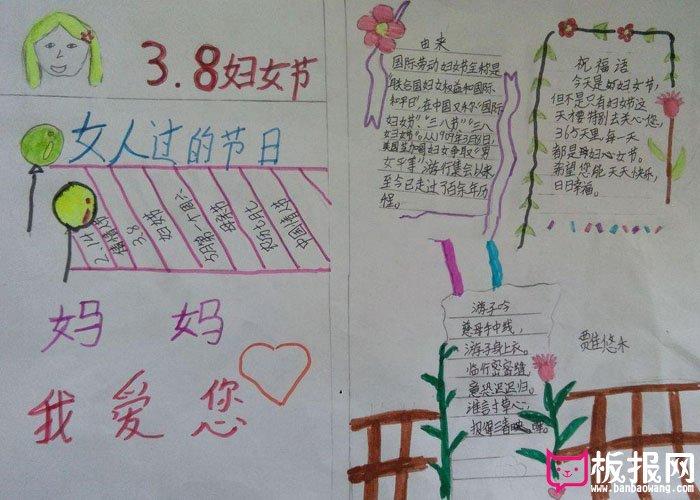 3.8妇女节
女人过的节日
2.14
3.8
妇女节
5月第一个周天
母亲节
农历七月七
中国情人节
妈 妈
我 爱 您
由来
国际劳动妇女节全称是
"联合国妇女权益和国际
和平日",在中国又称"国际
妇女节""三八节""三八
妇女节"。从1909年3月8日,
美国芝加哥妇女争取"男
女平等"游行集会以来
至今已走过了百年年历
程。
祝福语
今天是妇女节,
但不是只有妇女节这
天才特别去关心您,
365天里,每一天
都是妇女节。
希望您能天天快乐,
日日幸福。
游子吟
慈母手中线,
游子身上衣。
临行密密缝,
意恐迟迟归。
谁言寸草心,
报得三春晖。
板报网
www.banbaowang.com